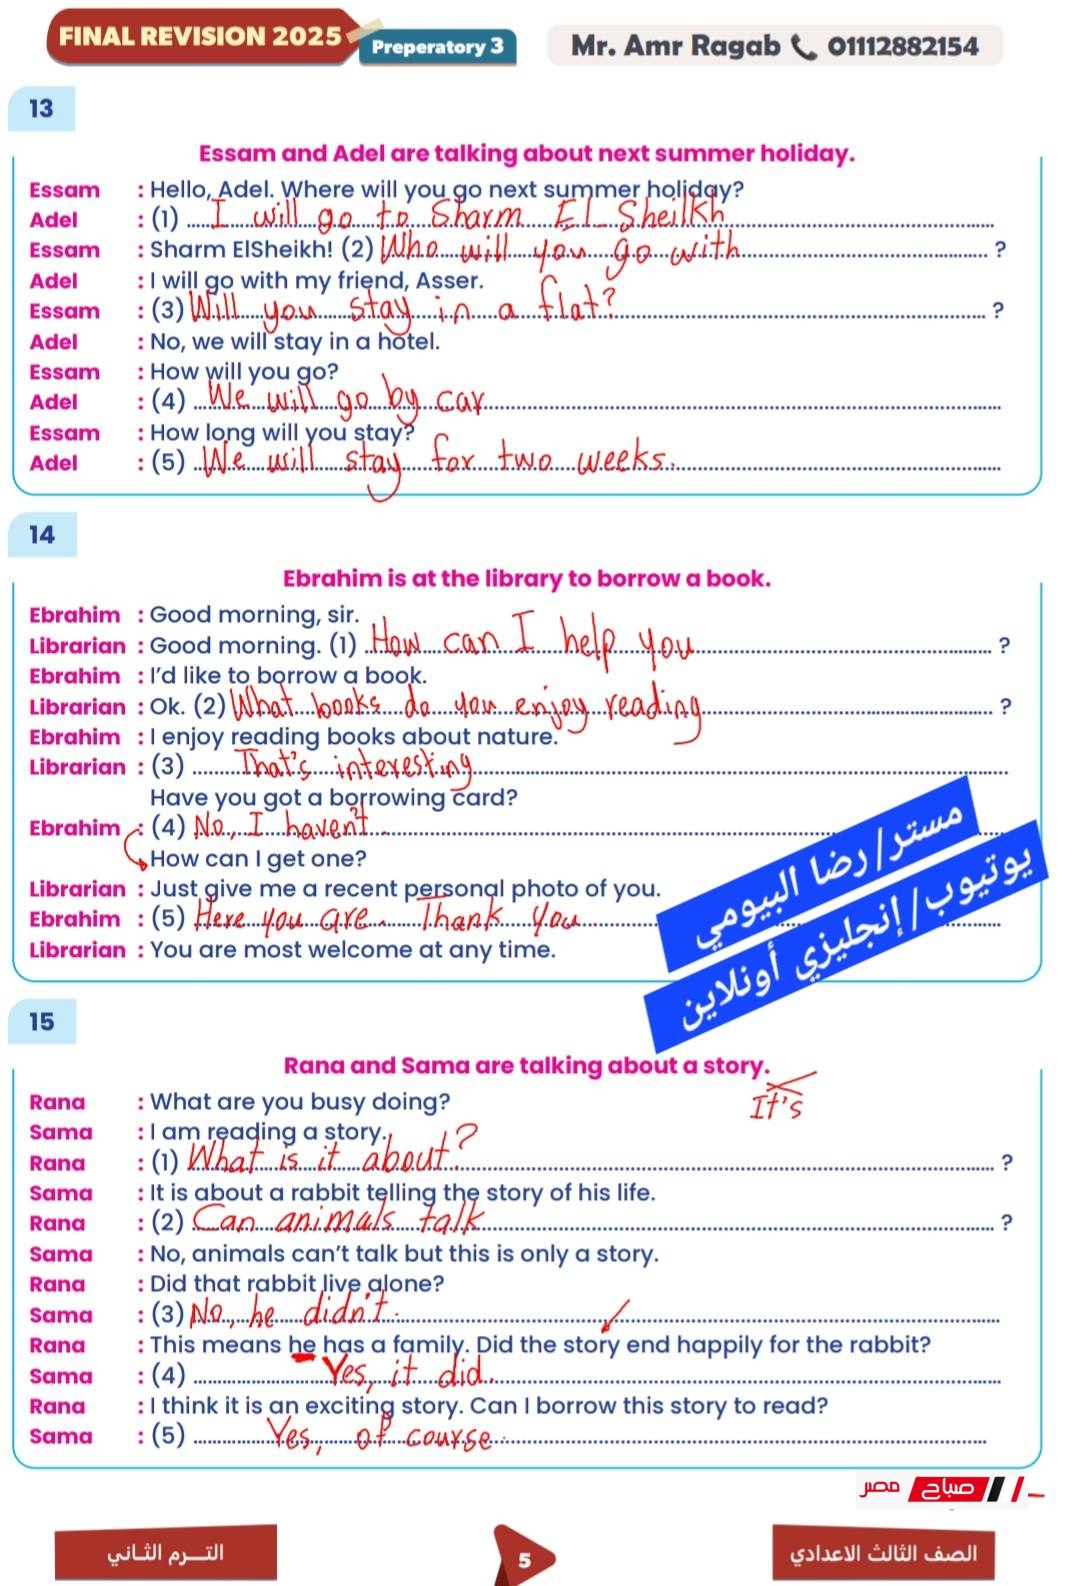 FINAL REVISION 2025
Preperatory 3
Mr. Amr Ragab 01112882154
13
Essam and Adel are talking about next summer holiday.
Essam : Hello, Adel. Where will you go next summer holiday?
Adel : (1) I will go to Sharm El-Sheilkh
Essam : Sharm ElSheikh! (2) Who will you go with ?
Adel : I will go with my friend, Asser.
Essam : (3) Will you stay in a flat? ?
Adel : No, we will stay in a hotel.
Essam : How will you go?
Adel : (4) We will go by car
Essam : How long will you stay?
Adel : (5) We will stay for two weeks.
14
Ebrahim is at the library to borrow a book.
Ebrahim : Good morning, sir.
Librarian : Good morning. (1) How can I help you ?
Ebrahim : I'd like to borrow a book.
Librarian : Ok. (2) What books do you enjoy reading ?
Ebrahim : I enjoy reading books about nature.
Librarian : (3) That's interesting
Have you got a borrowing card?
Ebrahim : (4) No, I haven't
How can I get one?
Librarian : Just give me a recent personal photo of you.
Ebrahim : (5) Here you are. Thank you
Librarian : You are most welcome at any time.
مستر/ رضا البيومي
يوتيوب/ إنجليزي أونلاين
15
Rana and Sama are talking about a story.
It's
Rana : What are you busy doing?
Sama : I am reading a story.
Rana : (1) What is it about? ?
Sama : It is about a rabbit telling the story of his life.
Rana : (2) Can animals talk ?
Sama : No, animals can't talk but this is only a story.
Rana : Did that rabbit live alone?
Sama : (3) No, he didn't.
Rana : This means he has a family. Did the story end happily for the rabbit?
Sama : (4) Yes, it did.
Rana : I think it is an exciting story. Can I borrow this story to read?
Sama : (5) Yes, of course.
صباح مصر
التـــرم الثـاني
5
الصف الثالث الاعدادي